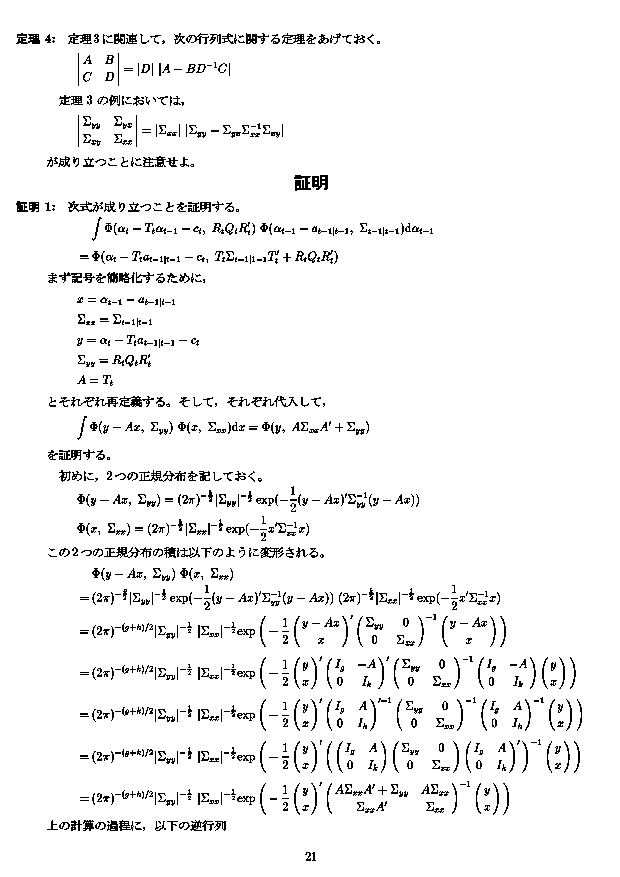 定理 4: 定理3に関連して，次の行列式に関する定理をあげておく。
| A B |
| C D | = |D| |A − BD⁻¹C|
定理 3 の例においては，
| Σyy Σyx |
| Σxy Σxx | = |Σxx| |Σyy − ΣyxΣxx⁻¹Σxy|
が成り立つことに注意せよ。
証明
証明 1: 次式が成り立つことを証明する。
∫ Φ(αt − Ttαt−1 − ct, RtQtR′t) Φ(αt−1 − at−1|t−1, Σt−1|t−1)dαt−1
= Φ(αt − Ttat−1|t−1 − ct, TtΣt−1|t−1T′t + RtQtR′t)
まず記号を簡略化するために，
x = αt−1 − at−1|t−1
Σxx = Σt−1|t−1
y = αt − Ttat−1|t−1 − ct
Σyy = RtQtR′t
A = Tt
とそれぞれ再定義する。そして，それぞれ代入して，
∫ Φ(y − Ax, Σyy) Φ(x, Σxx)dx = Φ(y, AΣxxA′ + Σyy)
を証明する。
初めに，2つの正規分布を記しておく。
Φ(y − Ax, Σyy) = (2π)^{−g/2}|Σyy|^{−1/2} exp(−1/2(y − Ax)′Σyy⁻¹(y − Ax))
Φ(x, Σxx) = (2π)^{−k/2}|Σxx|^{−1/2} exp(−1/2 x′Σxx⁻¹x)
この2つの正規分布の積は以下のように変形される。
Φ(y − Ax, Σyy) Φ(x, Σxx)
= (2π)^{−g/2}|Σyy|^{−1/2} exp(−1/2(y − Ax)′Σyy⁻¹(y − Ax)) (2π)^{−k/2}|Σxx|^{−1/2} exp(−1/2 x′Σxx⁻¹x)
= (2π)^{−(g+k)/2}|Σyy|^{−1/2} |Σxx|^{−1/2} exp(−1/2 (y − Ax; x)′ (Σyy 0; 0 Σxx)⁻¹ (y − Ax; x))
= (2π)^{−(g+k)/2}|Σyy|^{−1/2} |Σxx|^{−1/2} exp(−1/2 (y; x)′ (Ig −A; 0 Ik)′ (Σyy 0; 0 Σxx)⁻¹ (Ig −A; 0 Ik) (y; x))
= (2π)^{−(g+k)/2}|Σyy|^{−1/2} |Σxx|^{−1/2} exp(−1/2 (y; x)′ (Ig A; 0 Ik)′⁻¹ (Σyy 0; 0 Σxx)⁻¹ (Ig A; 0 Ik)⁻¹ (y; x))
= (2π)^{−(g+k)/2}|Σyy|^{−1/2} |Σxx|^{−1/2} exp(−1/2 (y; x)′ ((Ig A; 0 Ik) (Σyy 0; 0 Σxx) (Ig A; 0 Ik)′)⁻¹ (y; x))
= (2π)^{−(g+k)/2}|Σyy|^{−1/2} |Σxx|^{−1/2} exp(−1/2 (y; x)′ (AΣxxA′ + Σyy AΣxx; ΣxxA′ Σxx)⁻¹ (y; x))
上の計算の過程に，以下の逆行列
21